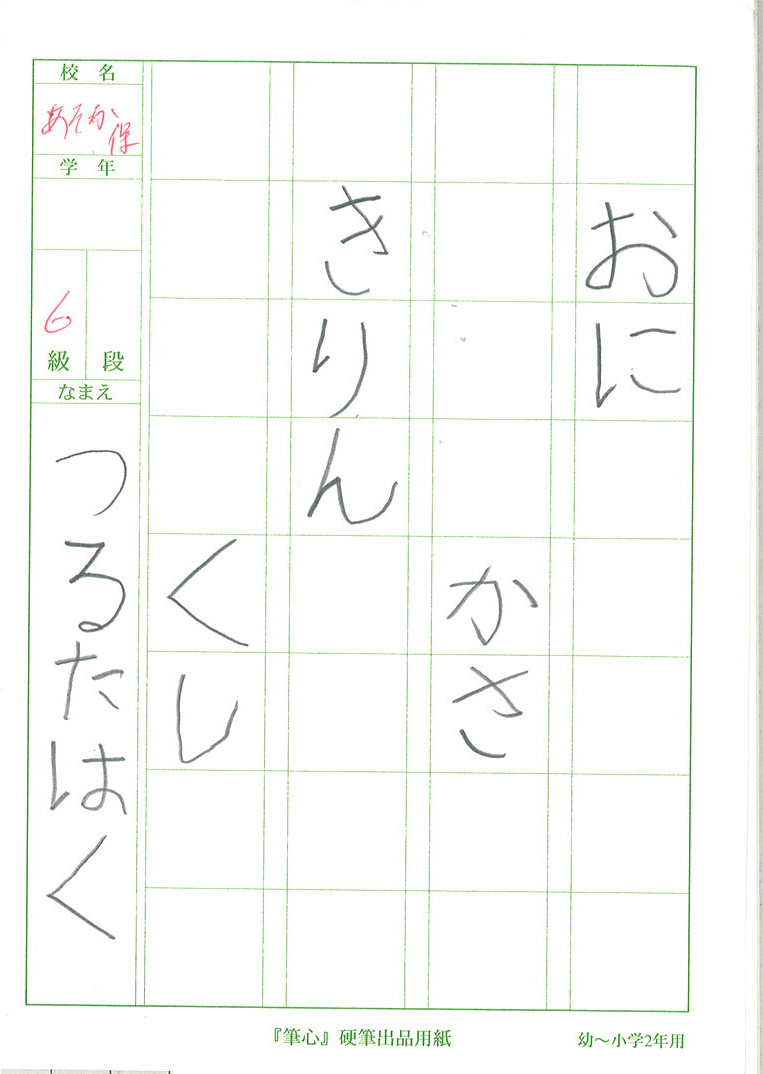 おに
かさ
きりん
くし
校名
あそか保
学年
6
級 段
なまえ
つるたはく
『筆心』硬筆出品用紙
幼〜小学2年用